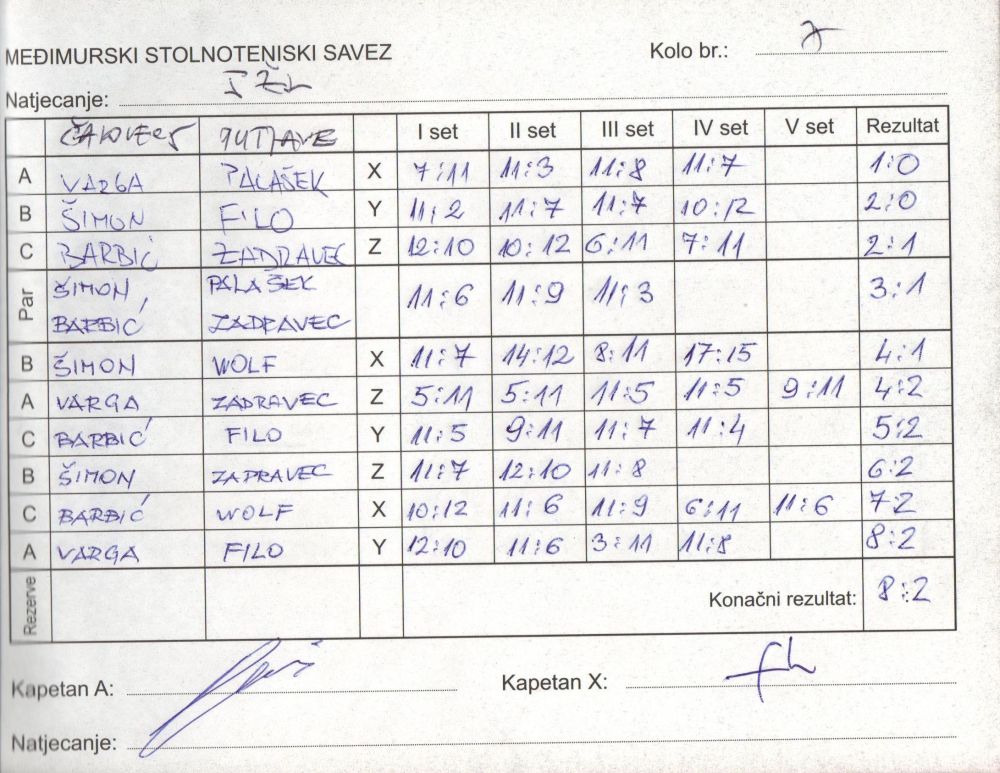 MEĐIMURSKI STOLNOTENISKI SAVEZ Kolo br.: 7
Natjecanje: 1 ŽL
ČAKOVEC 5 PUTJANE I set II set III set IV set V set Rezultat
A VARGA PALAŠEK X 7:11 11:3 11:8 11:7 1:0
B ŠIMON FILO Y 11:2 11:7 11:7 10:12 2:0
C BARBIĆ ZADRAVEC Z 12:10 10:12 6:11 7:11 2:1
Par ŠIMON PALAŠEK 11:6 11:9 11:3 3:1
BARBIĆ ZADRAVEC
B ŠIMON WOLF X 11:7 14:12 8:11 17:15 4:1
A VARGA ZADRAVEC Z 5:11 5:11 11:5 11:5 9:11 4:2
C BARBIĆ FILO Y 11:5 9:11 11:7 11:4 5:2
B ŠIMON ZADRAVEC Z 11:7 12:10 11:8 6:2
C BARBIĆ WOLF X 10:12 11:6 11:9 6:11 11:6 7:2
A VARGA FILO Y 12:10 11:6 3:11 11:8 8:2
Rezerve Konačni rezultat: 8:2
Kapetan A: Kapetan X:
Natjecanje: